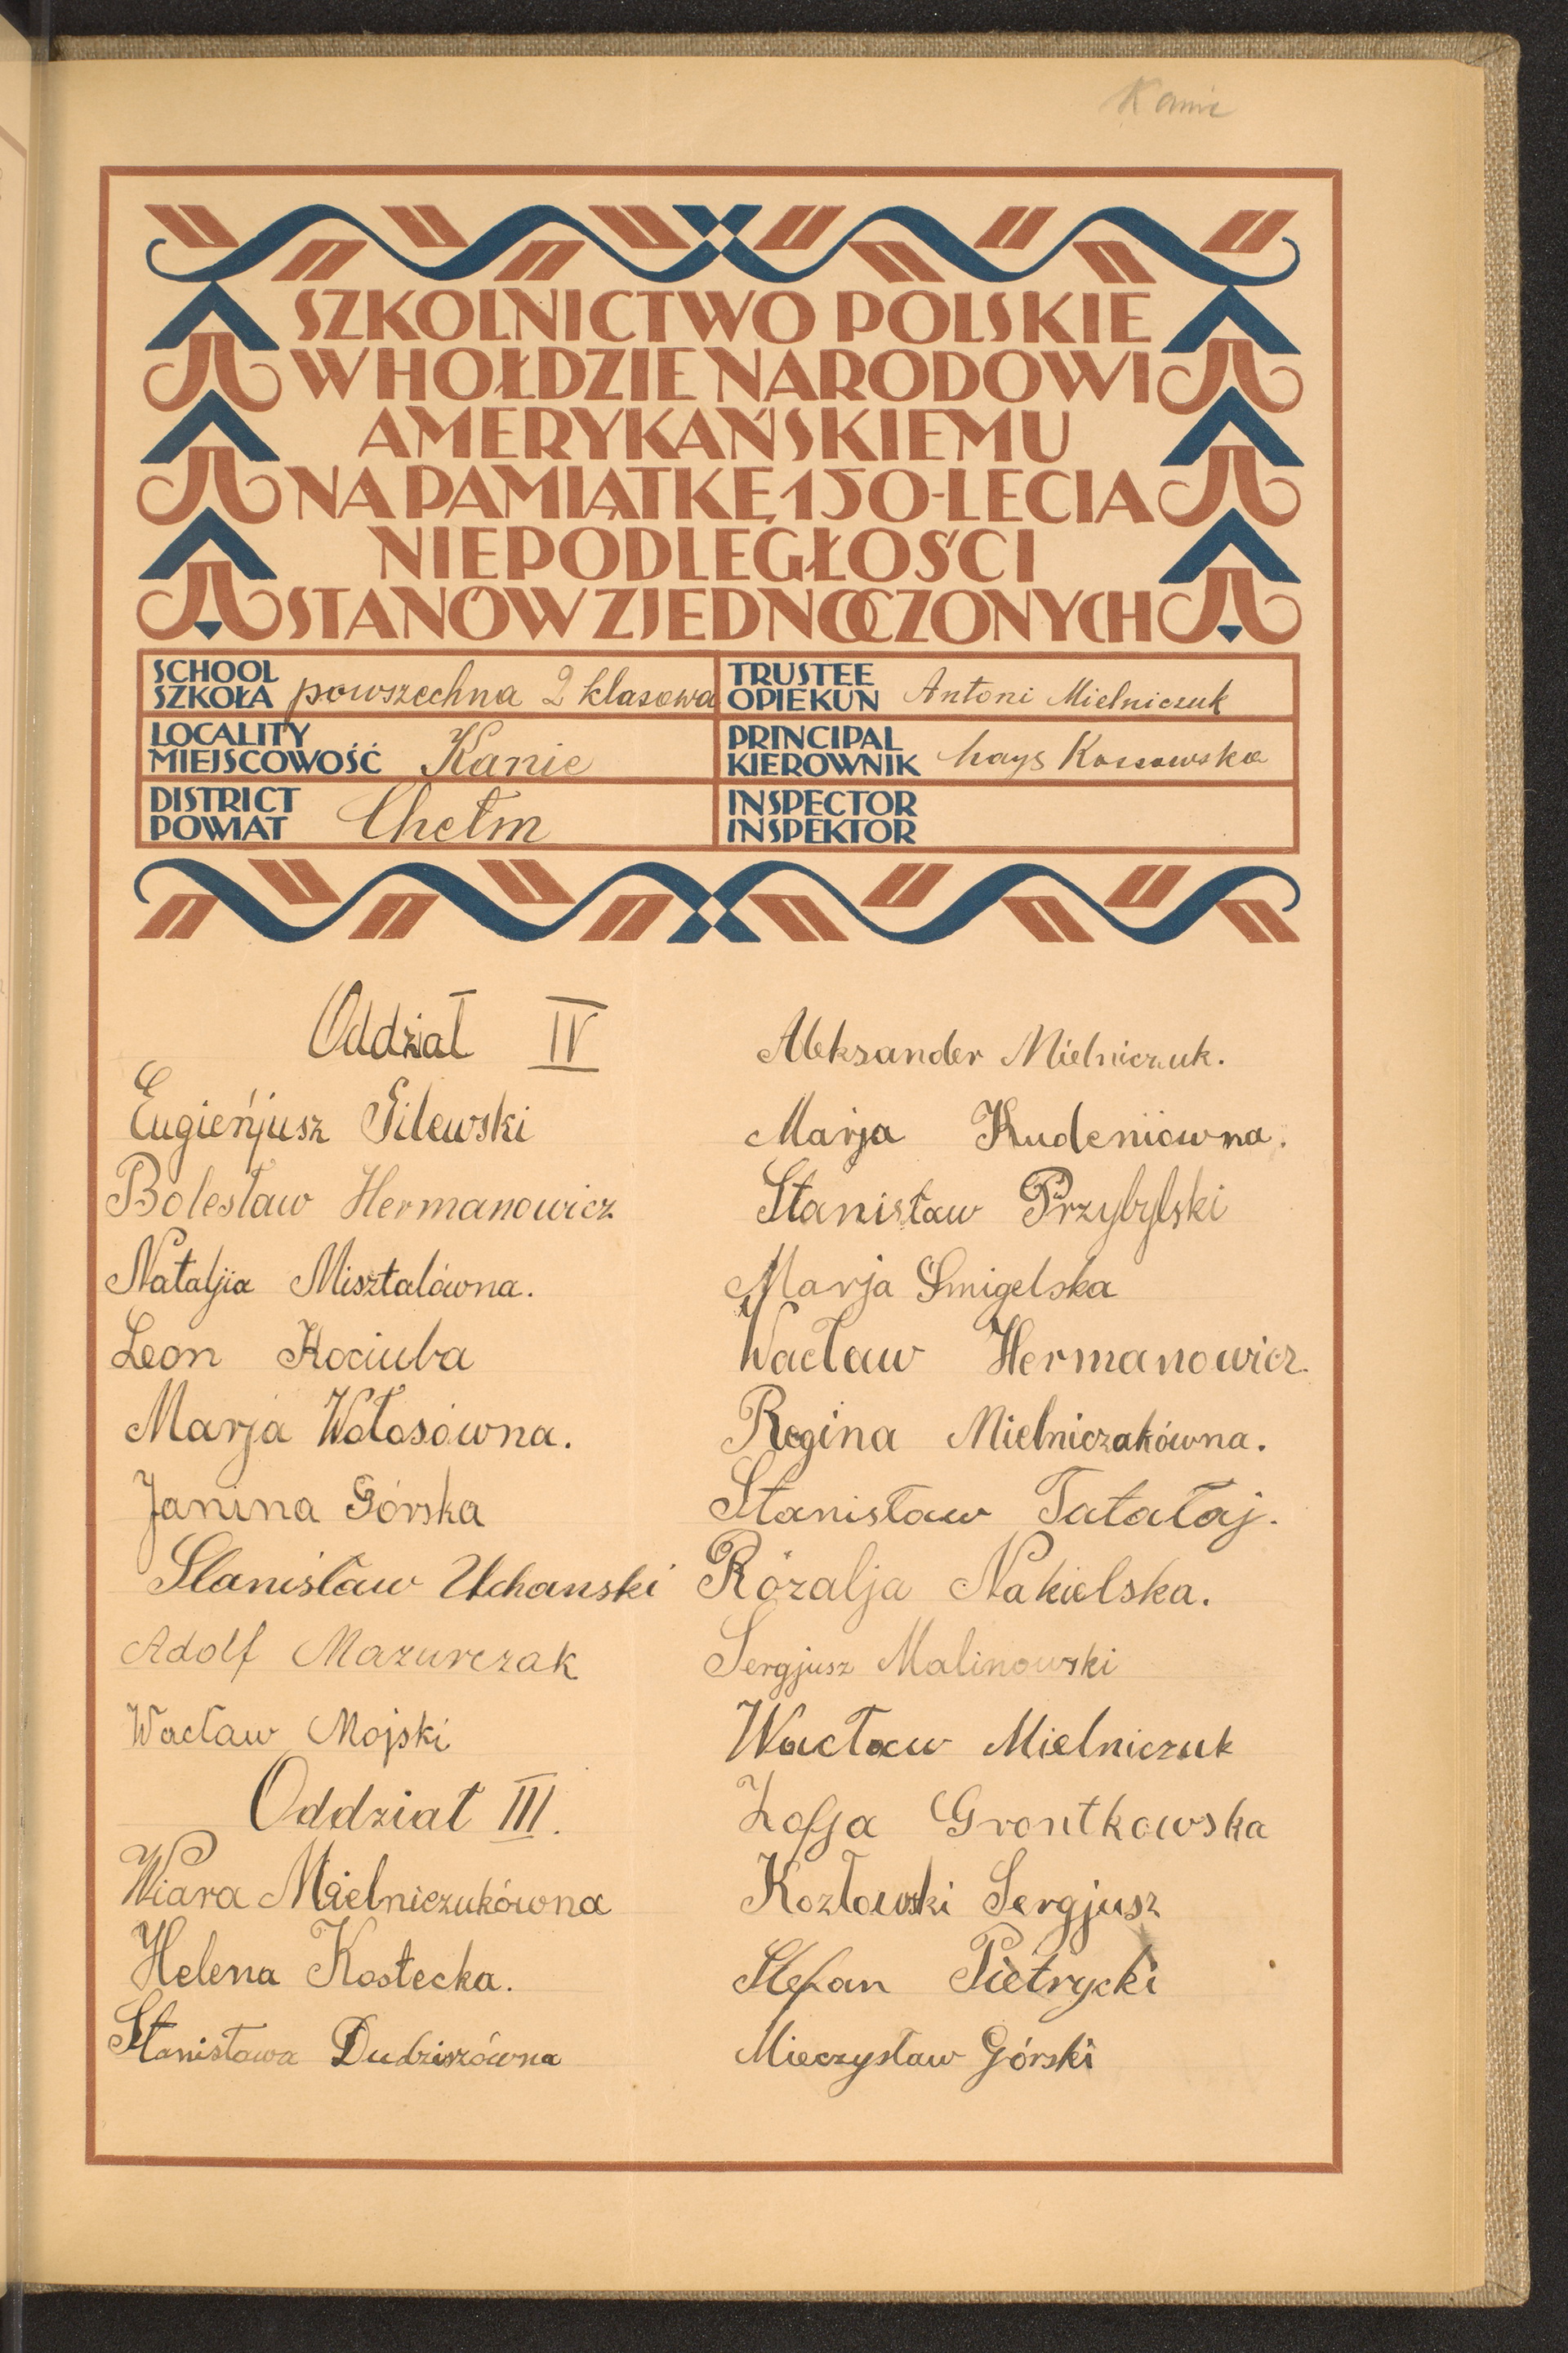 Kanie
SZKOLNICTWO POLSKIE
W HOŁDZIE NARODOWI
AMERYKAŃSKIEMU
NA PAMIĄTKĘ 150-LECIA
NIEPODLEGŁOŚCI
STANÓW ZJEDNOCZONYCH
SCHOOL
SZKOŁA powszechna 2 klasowa
TRUSTEE
OPIEKUN Antoni Mielniczuk
LOCALITY
MIEJSCOWOŚĆ Kanie
PRINCIPAL
KIEROWNIK Kossowska
DISTRICT
POWIAT Chełm
INSPECTOR
INSPEKTOR
Oddział IV
Eugieńjusz Gilewski
Bolesław Hermanowicz
Nataljia Misztalówna.
Leon Kociuba
Marja Wołosówna.
Janina Górska
Stanisław Uchanski
Adolf Mazurczak
Wacław Mojski
Oddział III.
Wiara Mielniczukówna
Helena Kostecka.
Stanisława Dudziszówna
Aleksander Mielniczuk.
Marja Kudeniówna.
Stanisław Przybylski
Marja Śmigelska
Wacław Hermanowicz
Regina Mielniczakówna.
Stanisław Tatałaj.
Rózalja Nakielska.
Sergjusz Malinowski
Wacław Mielniczuk
Zofja Grontkowska
Kozłowski Sergjusz
Stefan Pietrycki
Mieczysław Górski